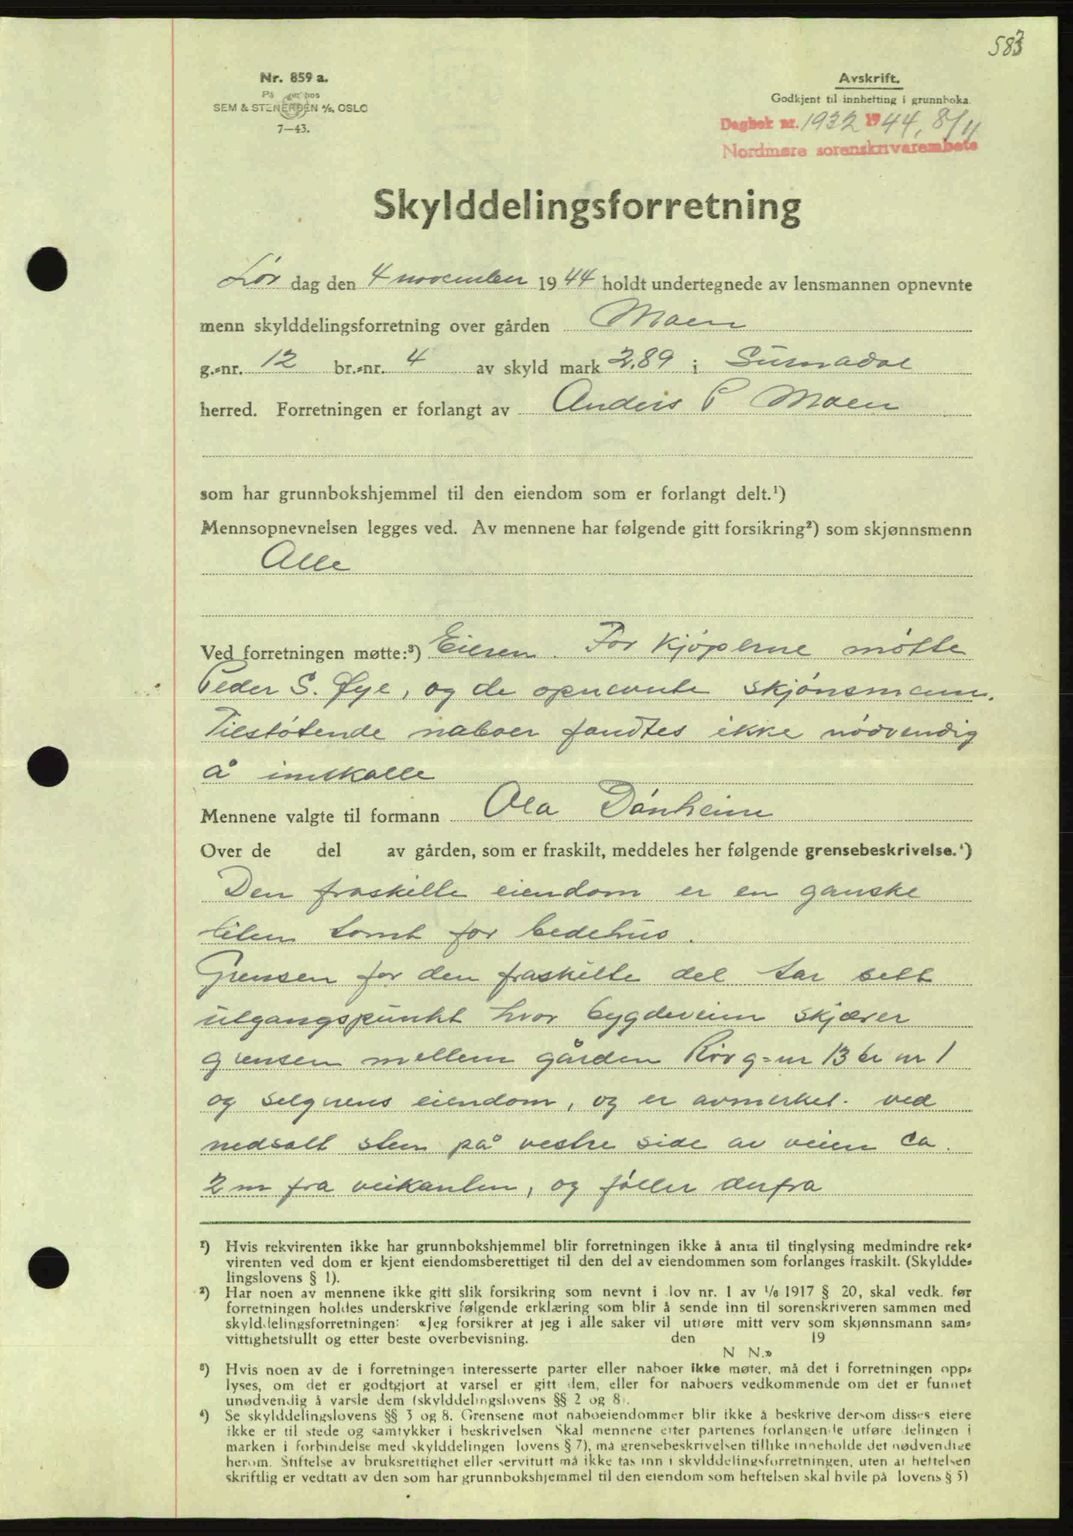 583
Nr. 859 a.
På lager hos
SEM & STENERSEN A/S, OSLO
7—43.
Avskrift.
Godkjent til innhefting i grunnboka.
Dagbok nr. 1932 1944, 8/11
Nordmøre sorenskriverembete
Skylddelingsforretning
Lør dag den 4 november 1944 holdt undertegnede av lensmannen opnevnte
menn skylddelingsforretning over gården Moen
g.-nr. 12 br.-nr. 4 av skyld mark 2.89 i Surnadal
herred. Forretningen er forlangt av Anders P Moen
som har grunnbokshjemmel til den eiendom som er forlangt delt.¹)
Mennsopnevnelsen legges ved. Av mennene har følgende gitt forsikring²) som skjønnsmenn
Alle
Ved forretningen møtte:³) Eieren. For kjøperne møtte
Peder S. Øye, og de opnevnte skjønsmenn.
Tilstøtende naboer fandtes ikke nødvendig
å innkalle
Mennene valgte til formann Ola Dønheim
Over de del av gården, som er fraskilt, meddeles her følgende grensebeskrivelse.⁴)
Den fraskilte eiendom er en ganske
liten tomt for bedehus.
Grensen for den fraskilte del tar sitt
utgangspunkt hvor bygdeveien skjærer
grensen mellem gården Røv g-nr 13 br nr 1
og selgerens eiendom, og er avmerket ved
nedsatt sten på vestre side av veien ca.
2 m fra veikanten, og følger derfra
¹) Hvis rekvirenten ikke har grunnbokshjemmel blir forretningen ikke å anta til tinglysing medmindre rek-
virenten ved dom er kjent eiendomsberettiget til den del av eiendommen som forlanges fraskilt. (Skyldde-
lingslovens § 1).
²) Har noen av mennene ikke gitt slik forsikring som nevnt i lov nr. 1 av 1/6 1917 § 20, skal vedk. før
forretningen holdes underskrive følgende erklæring som blir å sende inn til sorenskriveren sammen med
skylddelingsforretningen: «Jeg forsikrer at jeg i alle saker vil utføre mitt verv som skjønnsmann sam-
vittighetsfullt og etter beste overbevisning. den 19
N. N.»
³) Hvis noen av de i forretningen interesserte parter eller naboer ikke møter, må det i forretningen opp-
lyses, om det er godtgjort at varsel er gitt dem, eller for naboers vedkommende om det er funnet
unødvendig å varsle dem (skylddelingslovens §§ 2 og 8).
⁴) Se skylddelingslovens §§ 3 og 8. Grensene mot naboeiendommer blir ikke å beskrive dersom disses eiere
ikke er til stede og samtykker i beskrivelsen. Skal mennene etter partenes forlangende utføre delingen i
marken i forbindelse med skylddelingen (lovens § 7), må grensebeskrivelsen tillike inneholde det nødvendige
herom. Stiftelse av bruksrettighet eller servitutt må ikke tas inn i skylddelingsforretningen, uten at heftelsen
skriftlig er vedtatt av den som har grunnbokshjemmel til den eiendom som heftelsen skal hvile på (lovens § 5)